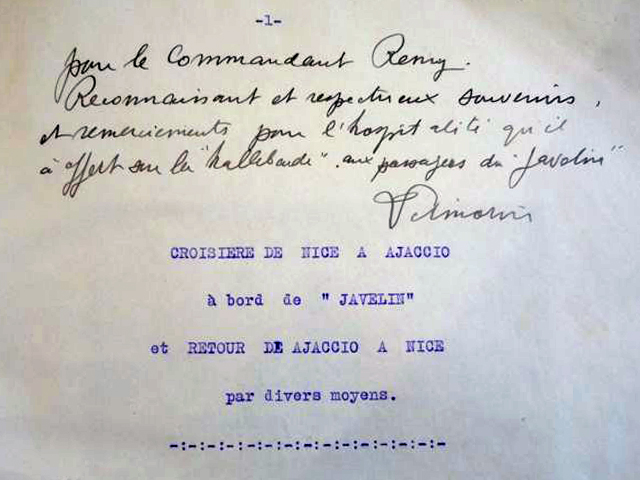 -1-
pour le Commandant Remy.
Reconnaissant et respectueux souvenirs,
et remerciements pour l'hospitalité qu'il
a offert sur la "hallebarde". aux passagers du "Javelin"
CROISIERE DE NICE A AJACCIO
à bord de " JAVELIN"
et RETOUR DE AJACCIO A NICE
par divers moyens.
-:-:-:-:-:-:-:-:-:-:-:-:-:-:-:-